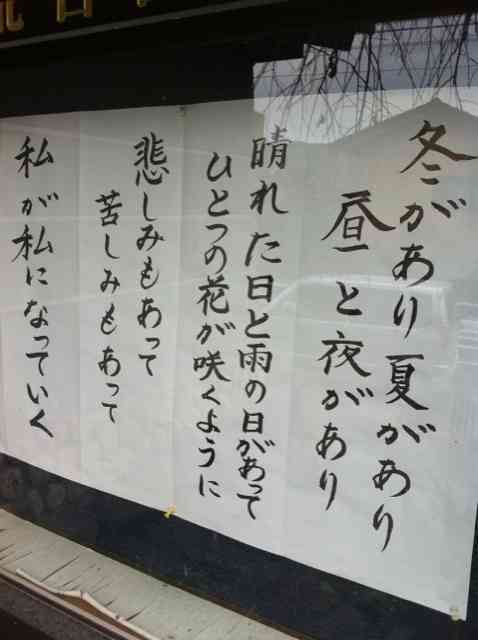 冬があり夏があり
昼と夜があり
晴れた日と雨の日があって
ひとつの花が咲くように
悲しみもあって
苦しみもあって
私が私になっていく